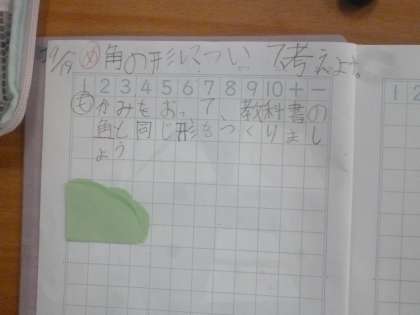 め 角の形について考えよう。
1 2 3 4 5 6 7 8 9 10 + -
も かみをおって、教科書の
角と同じ形をつくりまし
ょう
1 2